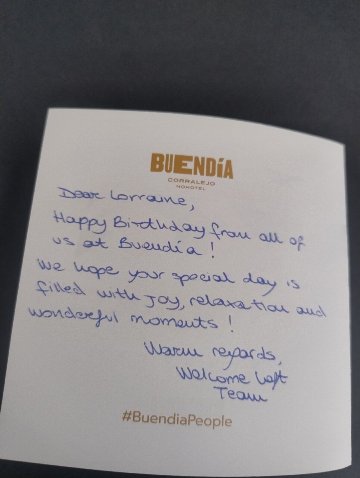 BUENDÍA
CORRALEJO
NOHOTEL
Dear Lorraine,
Happy Birthday from all of
us at Buendía!
We hope your special day is
filled with joy, relaxation and
wonderful moments!
Warm regards,
Welcome Loft
Team
#BuendiaPeople